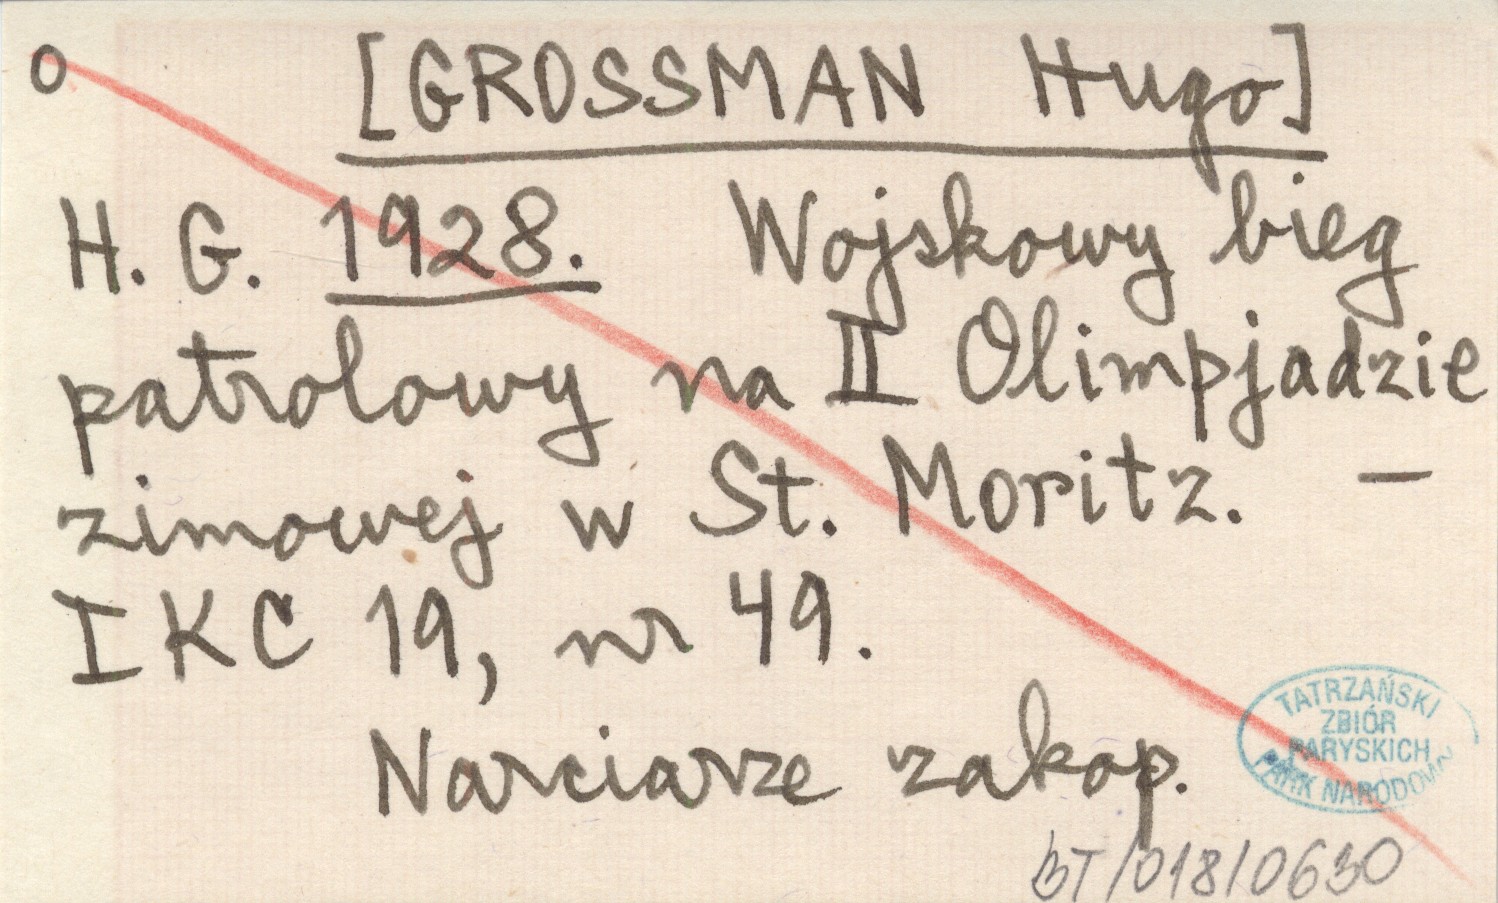 o [GROSSMAN Hugo]
H. G. 1928. Wojskowy bieg
patrolowy na II Olimpjadzie
zimowej w St. Moritz. —
IKC 19, nr 49.
Narciarze zakop.
TATRZAŃSKI
ZBIÓR
PARYSKICH
PARK NARODOWY
BT/018/0630